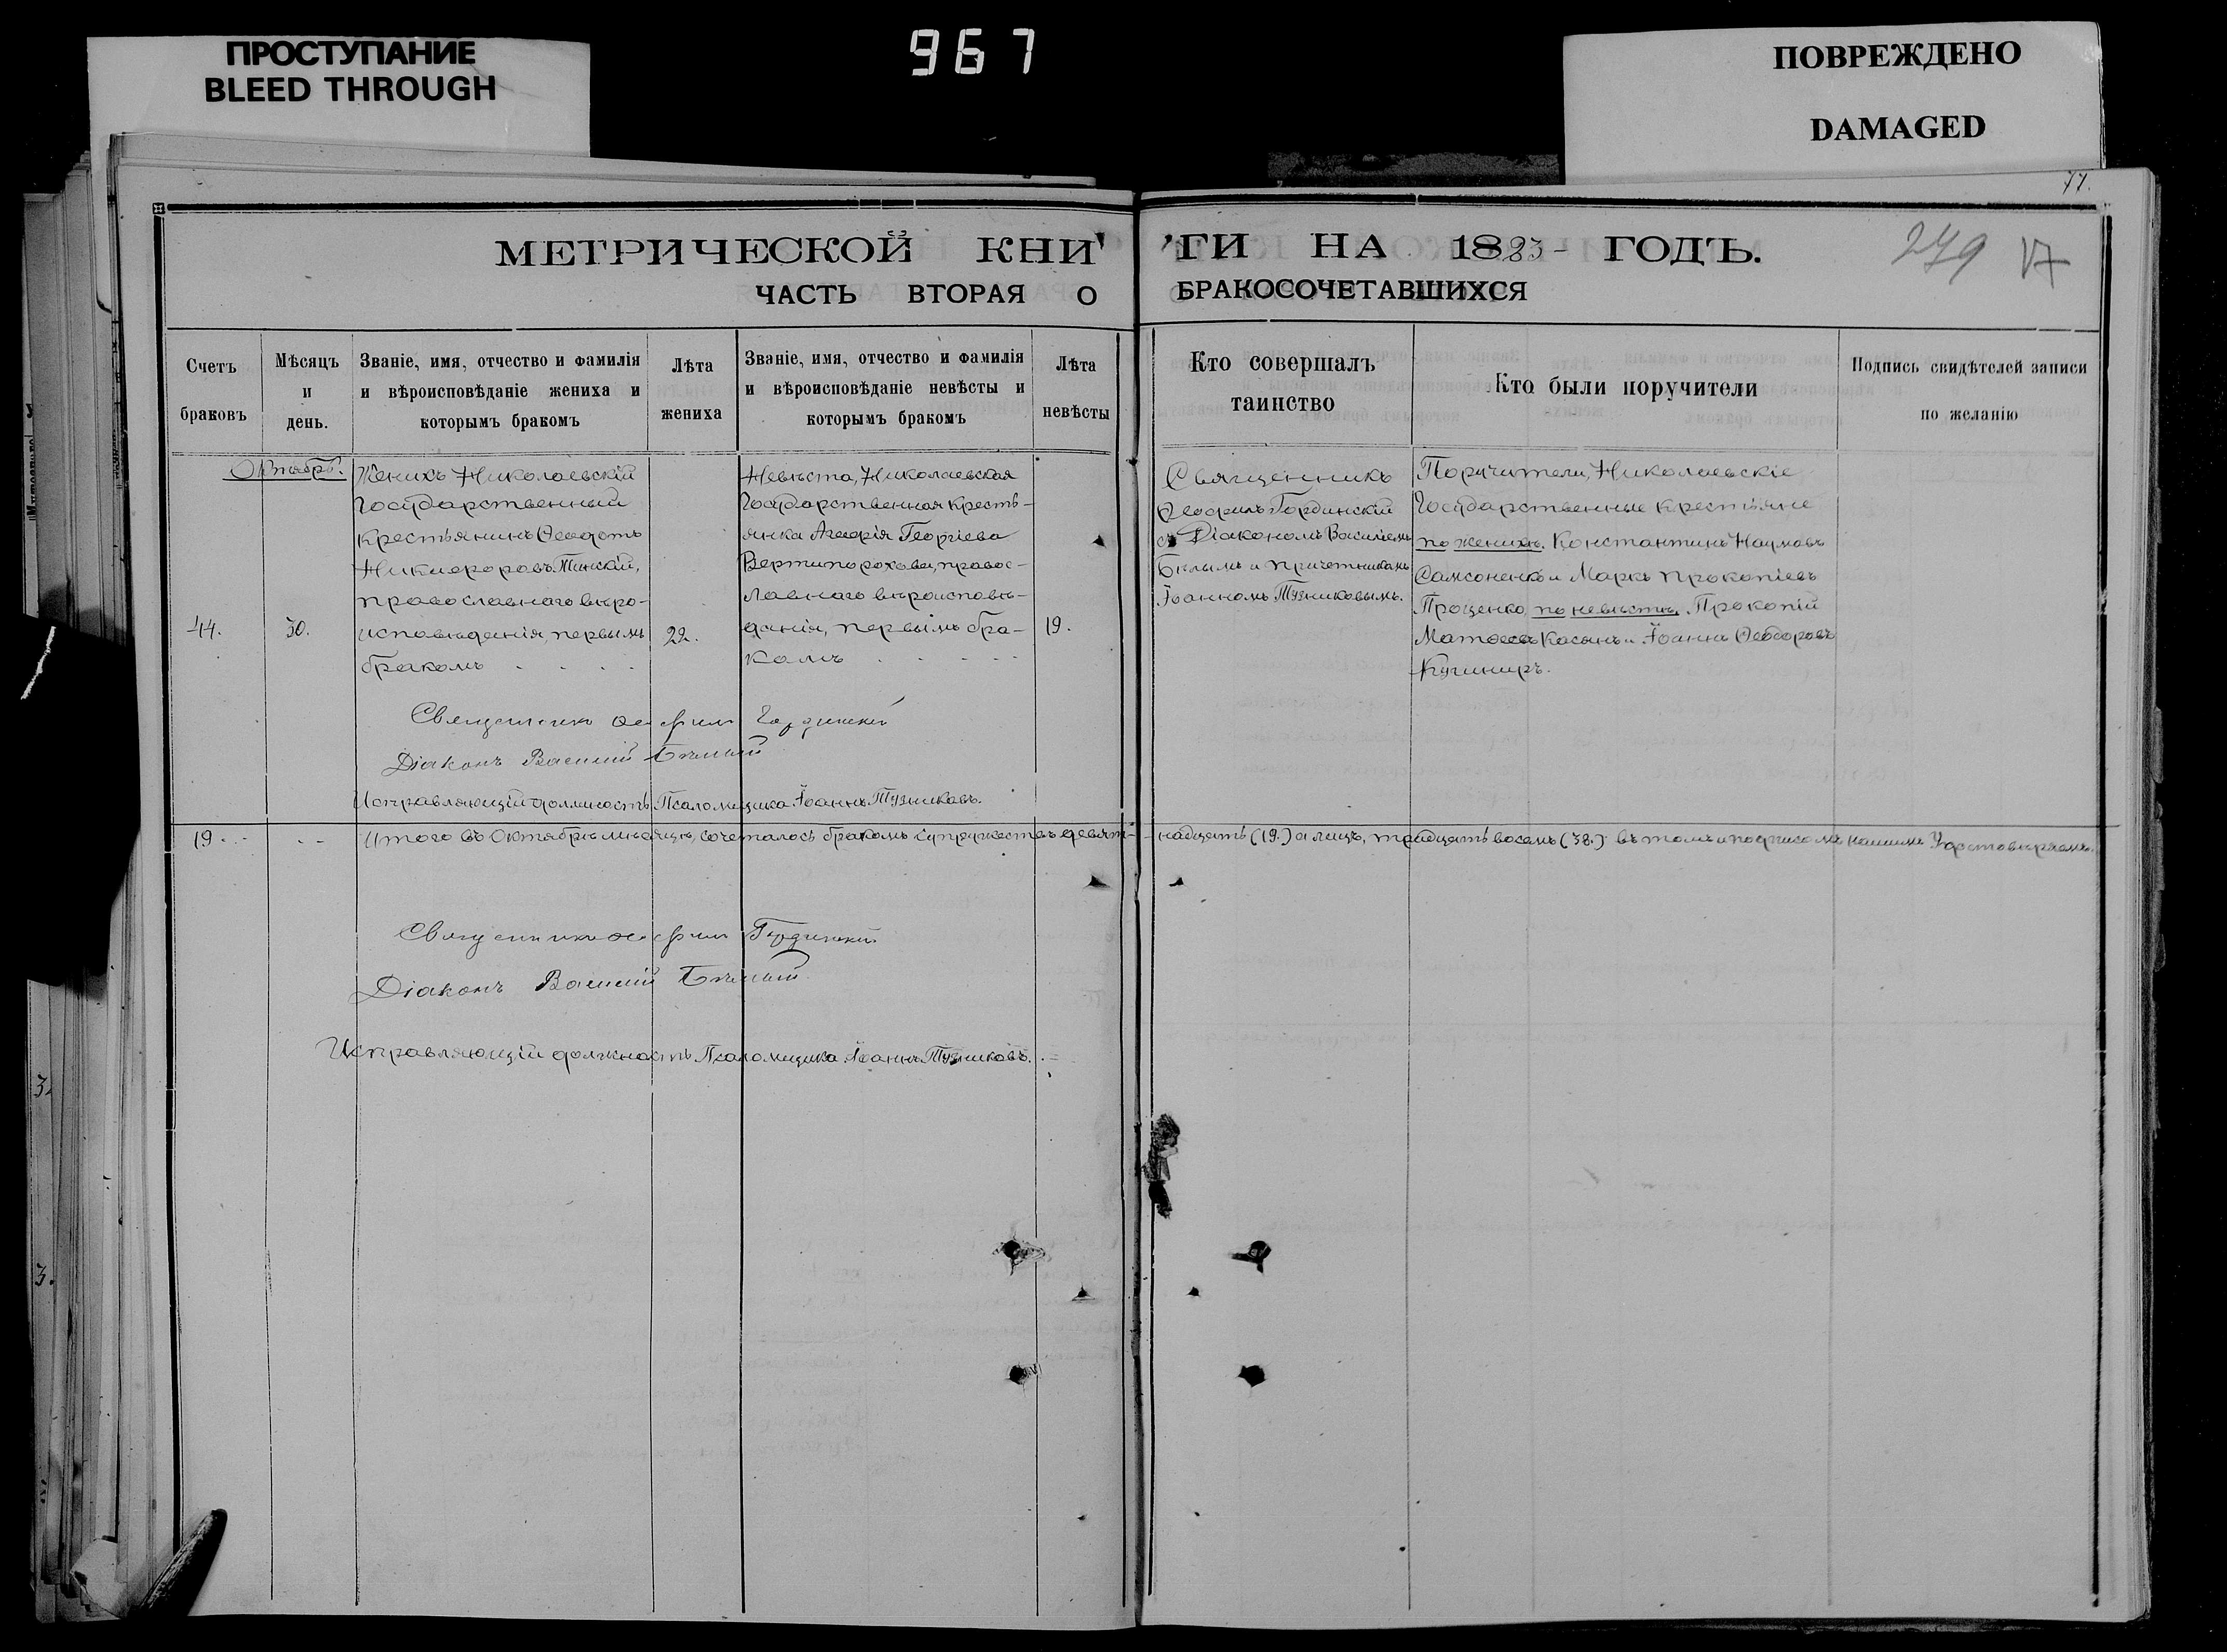 ПРОСТУПАНИЕ
BLEED THROUGH
967
ПОВРЕЖДЕНО
DAMAGED
77.
МЕТРИЧЕСКОЙ КНИ'ГИ НА 1883 ГОДЪ.
279
ЧАСТЬ ВТОРАЯ О БРАКОСОЧЕТАВШИХСЯ
Счетъ браковъ
Мѣсяцъ и день.
Званіе, имя, отчество и фамилія
и вѣроисповѣданіе жениха и
которымъ бракомъ
Лѣта жениха
Званіе, имя, отчество и фамилія
и вѣроисповѣданіе невѣсты и
которымъ бракомъ
Лѣта невѣсты
Кто совершалъ
таинство
Кто были поручители
Подпись свидѣтелей записи
по желанію
Октябрь.
44.
30.
Женихъ, Николаевскій
Государственный
крестьянинъ Ѳеодотъ
Никифоровъ
православнаго вѣро-
исповѣданія, первымъ
бракомъ . . . .
22.
Невѣста, Николаевская
Государственная кресть-
янка Марія Георгіева
Вертипорохова, правос-
лавнаго вѣроисповѣ-
данія, первымъ бра-
комъ . . . . .
19.
Священникъ
Ѳеофилъ Гординскій
съ Діакономъ Василіемъ
Бѣлымъ и причетникомъ
Іоанномъ Тузниковымъ.
Поручители, Николаевскіе
Государственные крестьяне
по женихѣ. Константинъ Наумовъ
Самсоненко и Маркъ Прокопіевъ
Проценко, по невѣстѣ, Прокопій
Матѳеевъ Касянъ и Іоаннъ Ѳеодоровъ
Кушниръ.
Священникъ Ѳеофилъ Гординскій
Діаконъ Василій Бѣлый
Исправляющій должность Псаломщика Іоаннъ Тузниковъ.
19. . - - - Итого въ Октябрѣ мѣсяцѣ, сочеталось бракомъ супружествъ девят-надцать (19.) а лицъ, тридцать восемь (38.) въ томъ и подписомъ нашимъ Удостовѣряемъ.
Священникъ Ѳеофилъ Гординскій
Діаконъ Василій Бѣлый
Исправляющій должность Псаломщика Іоаннъ Тузниковъ.
3.
3.